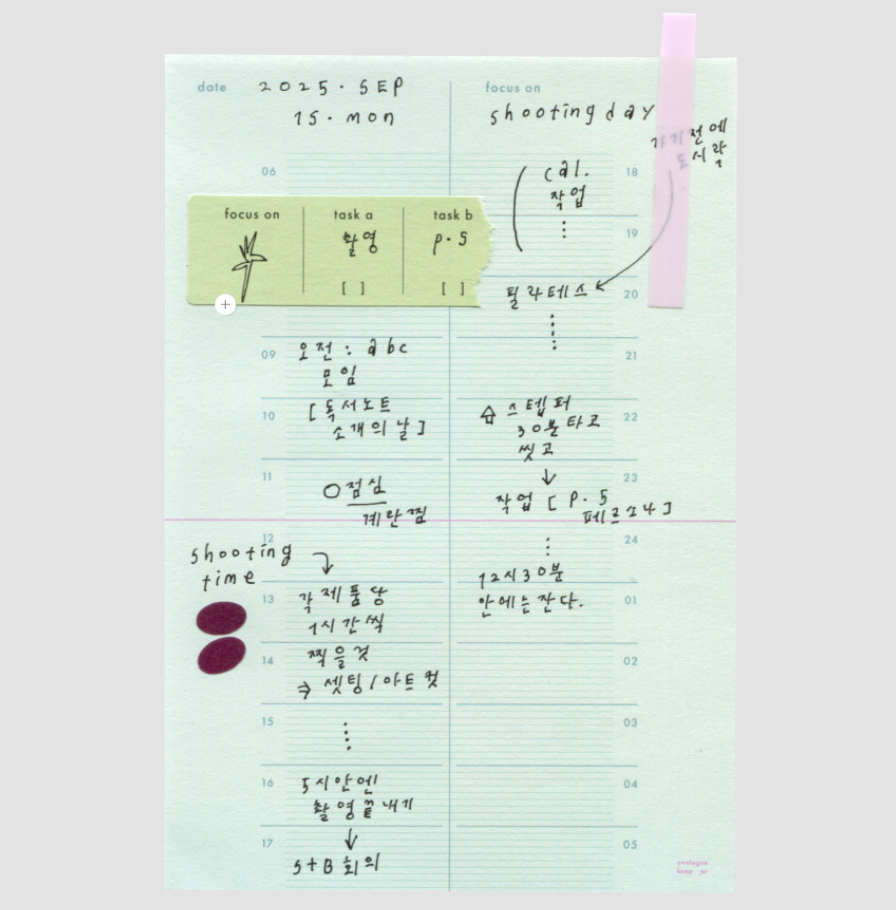 date 2025. SEP
15. mon
focus on
shooting day
가기 전에
도시락
06
focus on task a task b
촬영 p.5
[ ] [ ]
09 오전 : abc
모임
10 [ 독서노트
소개의 날 ]
11
○ 점심
계란찜
12
shooting
time
13 각 제품당
1시간씩
14 찍을것
⇒ 셋팅 / 아트 컷
15
⋮
16 5시 안엔
촬영 끝내기
↓
17 5+B 회의
18 cal.
작업
⋮
19
20 필라테스
⋮
21
22 스텝퍼
30분 타고
씻고
↓
23 작업 [ p.5
페르소나 ]
24
⋮
12시 30분
01 안에는 잔다.
02
03
04
05
analogue
keeper